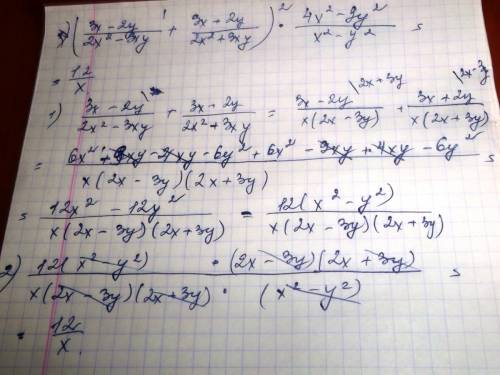 ( (3x - 2y)/(2x² - 3xy) + (3x + 2y)/(2x² + 3xy) )² · (4x² - 9y²)/(x² - y²) =
= 12/x
1) (3x - 2y)/(2x² - 3xy) + (3x + 2y)/(2x² + 3xy) = (3x - 2y)/(x(2x - 3y)) \2x + 3y + (3x + 2y)/(x(2x + 3y)) \2x - 3y
= (6x² + 9xy - 4xy - 6y² + 6x² - 9xy + 4xy - 6y²)/(x(2x - 3y)(2x + 3y)) =
= (12x² - 12y²)/(x(2x - 3y)(2x + 3y)) = 12(x² - y²)/(x(2x - 3y)(2x + 3y))
2) (12(x² - y²) · (2x - 3y)(2x + 3y))/(x(2x - 3y)(2x + 3y) · (x² - y²)) =
= 12/x.